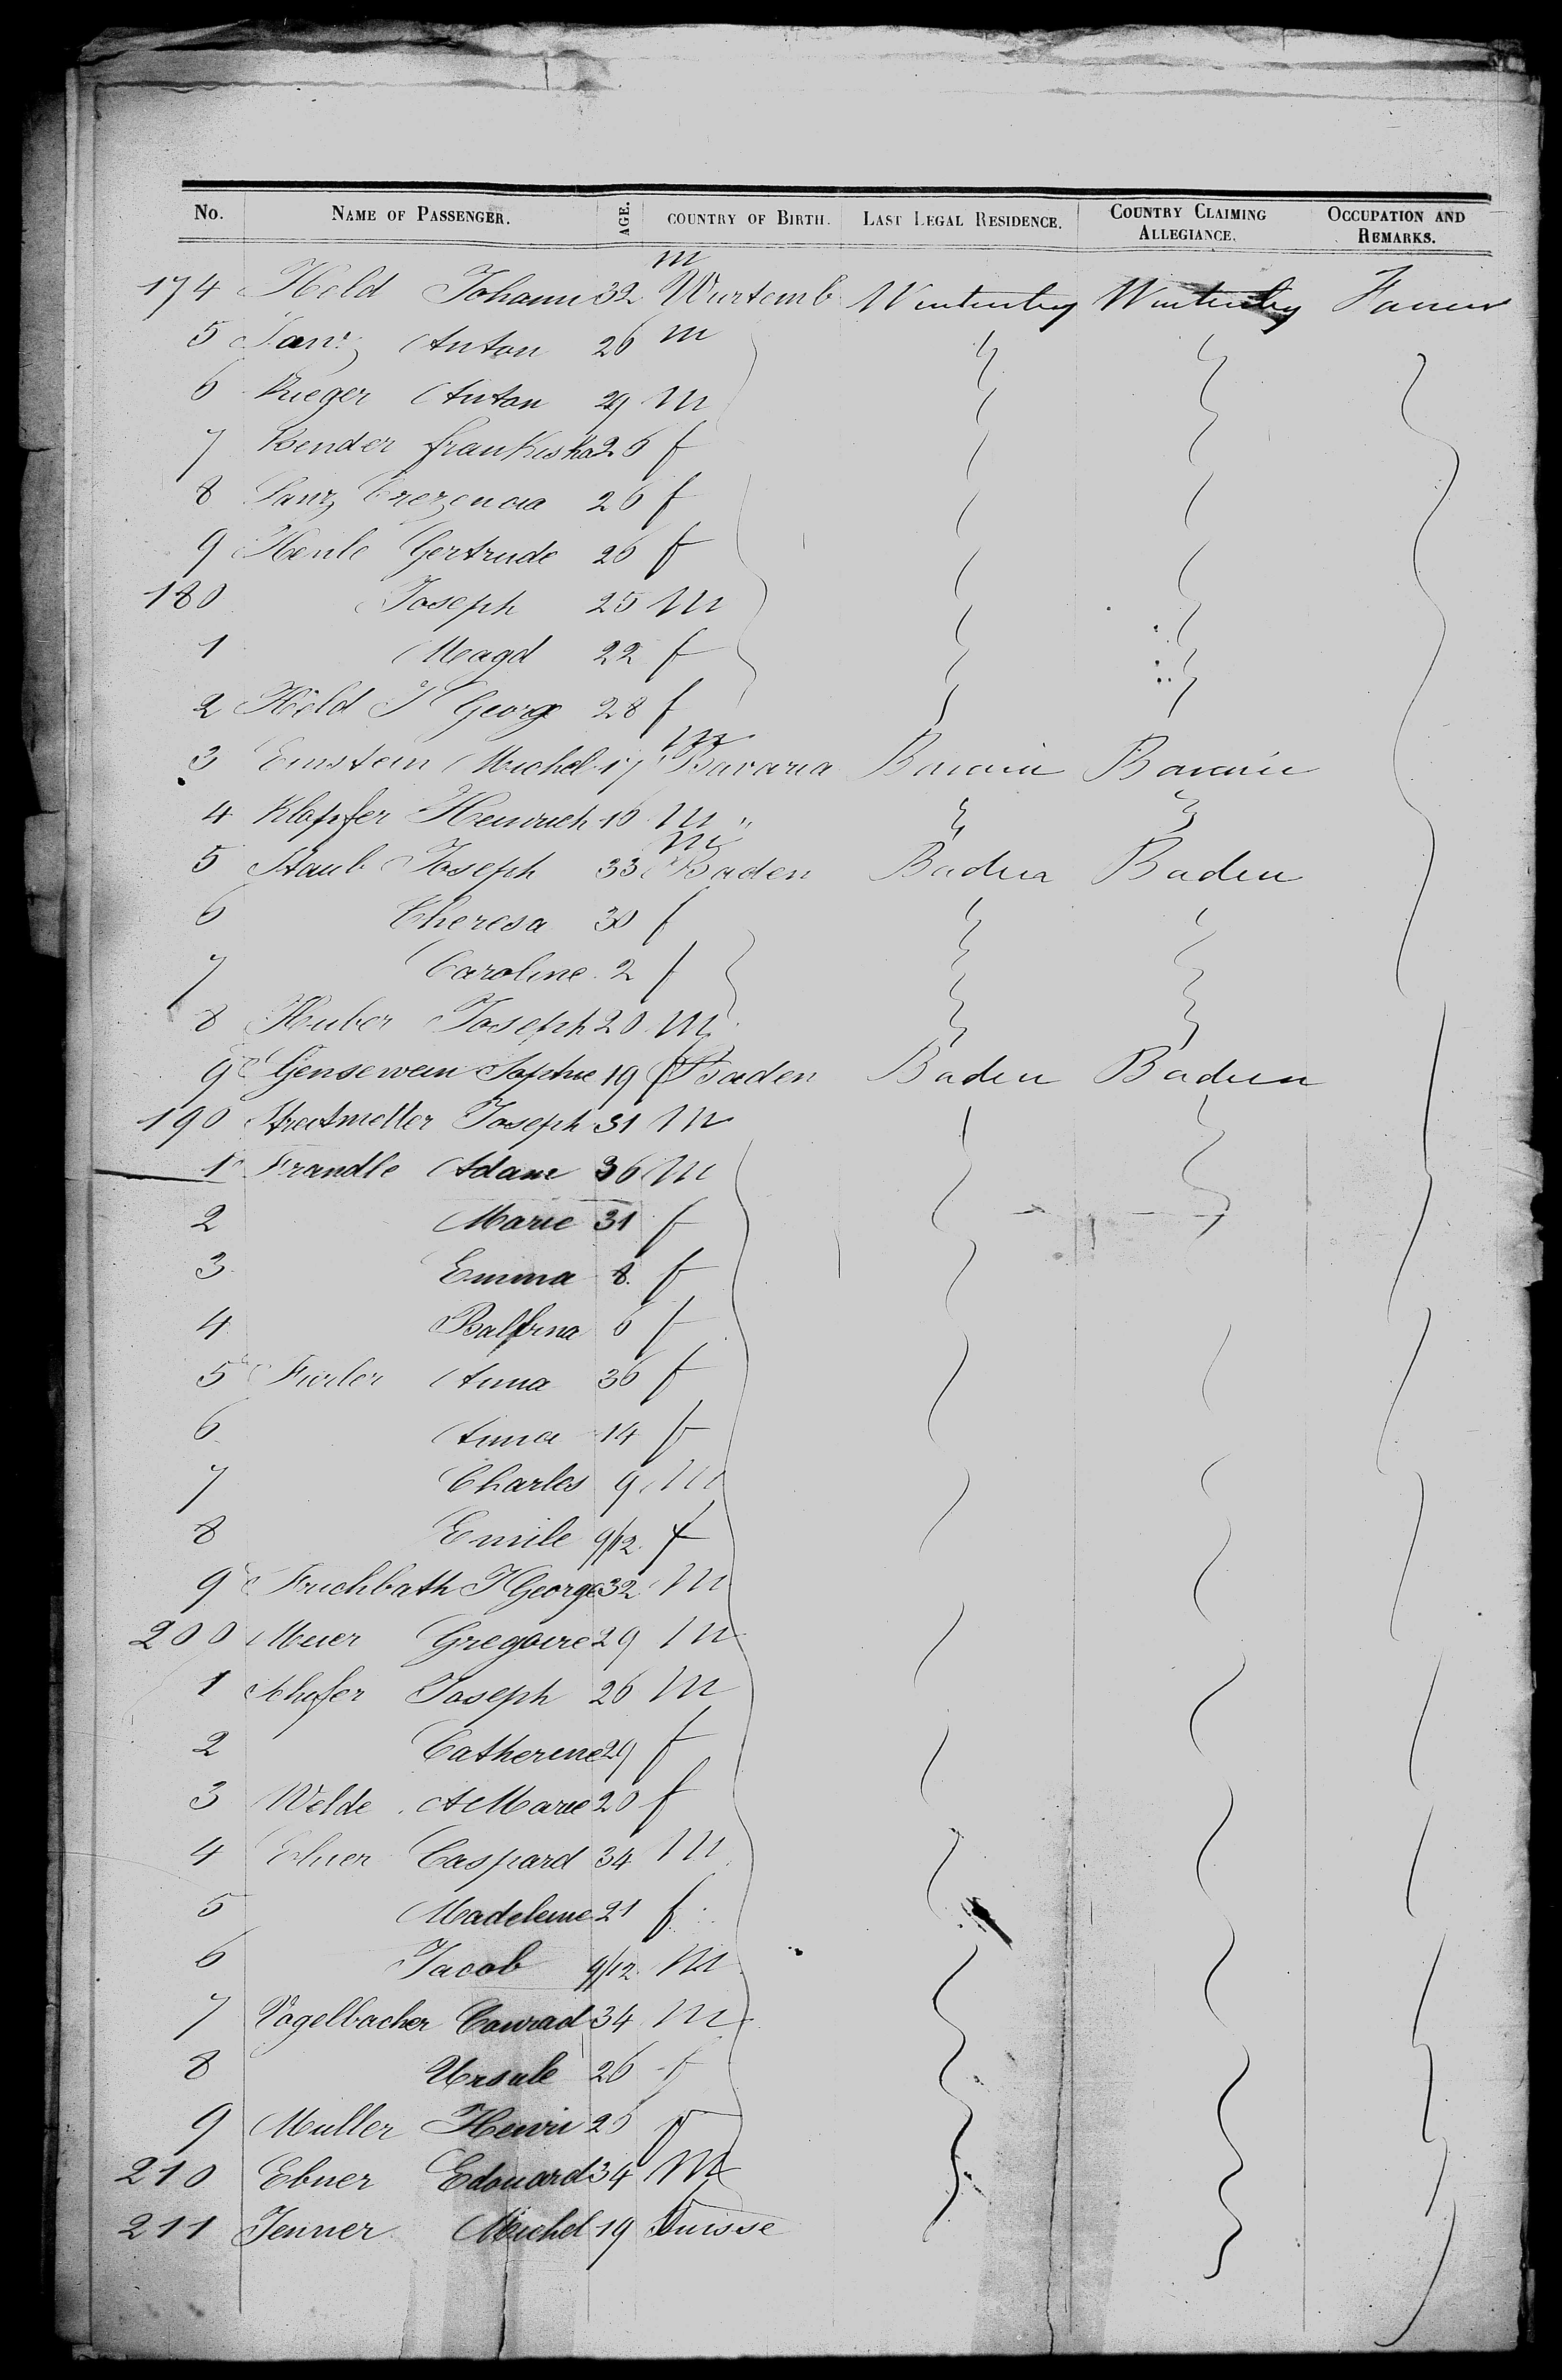 No. NAME OF PASSENGER. AGE. COUNTRY OF BIRTH. LAST LEGAL RESIDENCE. COUNTRY CLAIMING ALLEGIANCE. OCCUPATION AND REMARKS.
174 Held Johann 32 m Wurtemb Wurtembg Wurtembg Farmer
5 Anton 26 m
6 Rieger Anton 29 m
7 Bender Frankiska 26 f
8 26 f
9 Henle Gertrude 26 f
180 Joseph 25 m
1 Magd 22 f
2 Held J George 28 f
3 Einstein Michel 17 m Bavaria Bavaria Bavaria
4 Klopfer Heinrich 16 m "
5 Staub Joseph 33 m Baden Baden Baden
6 Theresa 30 f
7 Caroline 2 f
8 Huber Joseph 20 m
9 Gensewein Sophie 19 f Baden Baden Baden
190 Joseph 31 m
1 Frandle Adam 36 m
2 Marie 31 f
3 Emma 8 f
4 Balbina 6 f
5 Anna 36 f
6 Anna 14 f
7 Charles 9 m
8 Emile 9/12 f
9 J George 32 m
200 Meier Gregoire 29 m
1 Schofer Joseph 26 m
2 Catherine 29 f
3 Welde A Marie 20 f
4 Ebner Caspard 34 m
5 Madeleine 21 f
6 Jacob 9/12 m
7 Vogelbacher Conrad 34 m
8 Ursule 26 f
9 Muller Henri 26
210 Ebner Edouard 34 m
211 Jenner Michel 19 Suisse